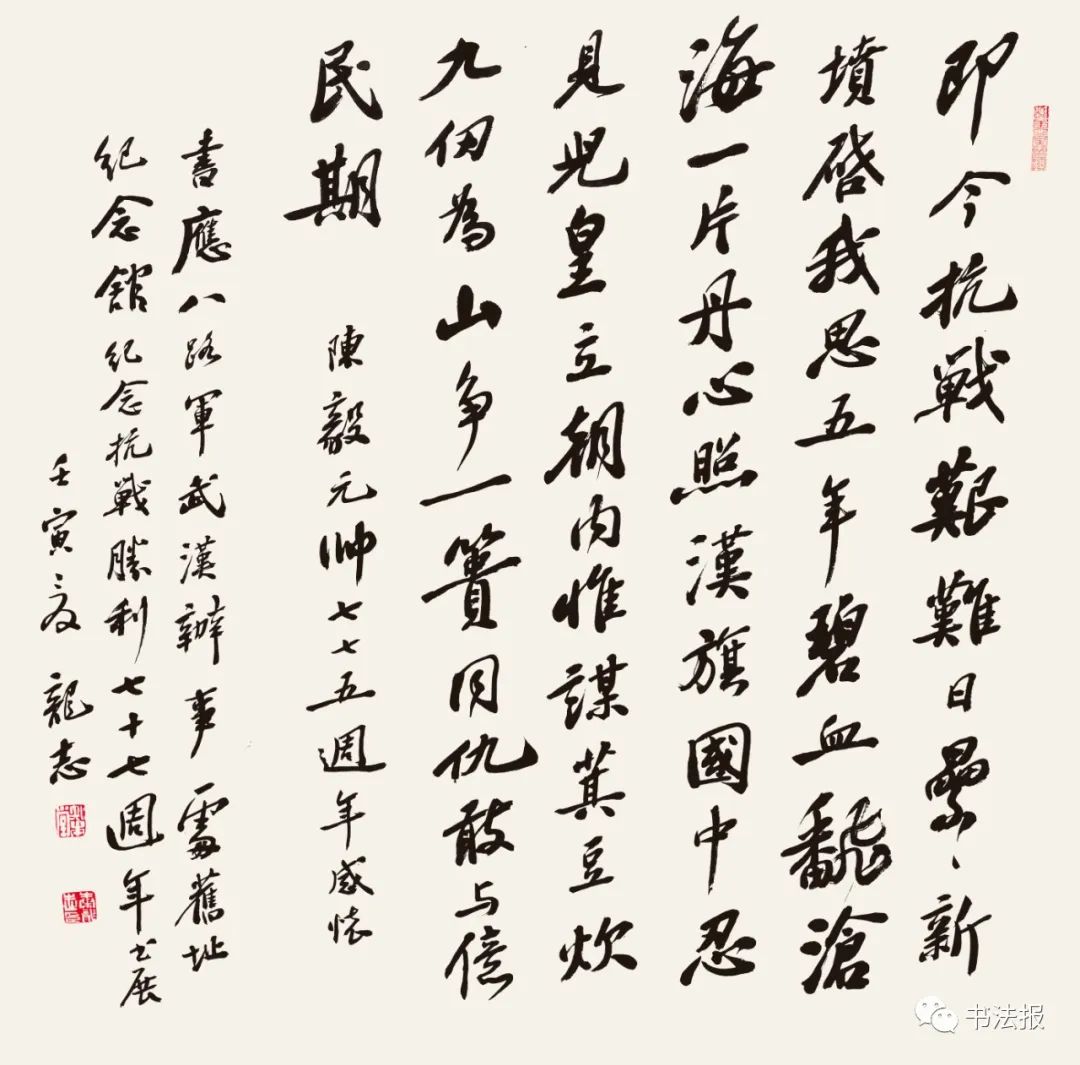 即今抗戰艱難日纍〻新
墳啓我思五年碧血飜滄
海一片丹心照漢旗國中忍
見兒皇立朝内惟謀萁豆炊
九仞為山争一簣同仇敢与億
民期
陳毅元帥七七五週年感懷
書應八路軍武漢辦事處舊址
紀念館紀念抗戰勝利七十七週年书展
壬寅夏龍志
书法报